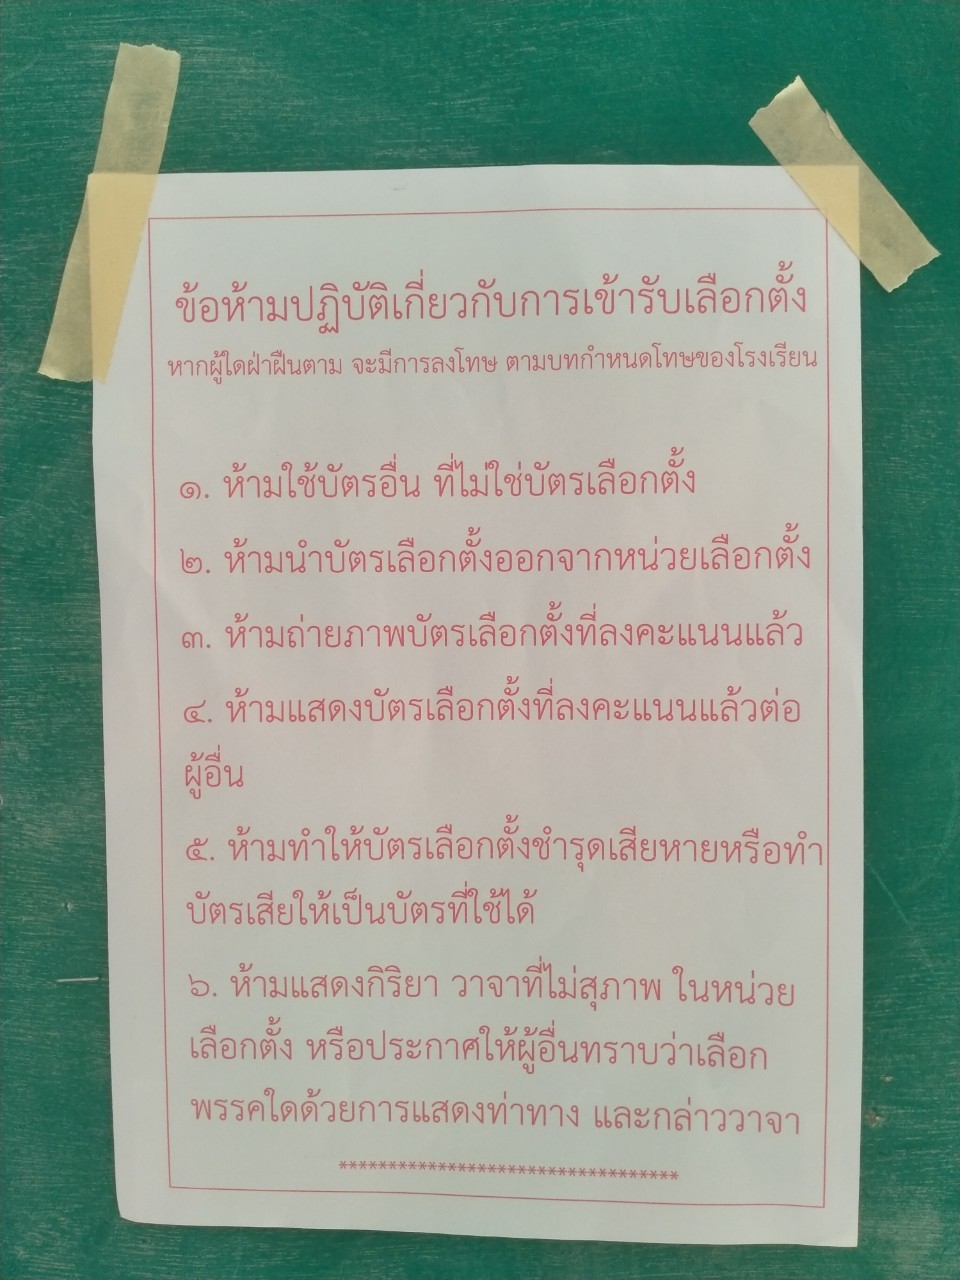 ข้อห้ามปฏิบัติเกี่ยวกับการเข้ารับเลือกตั้ง
หากผู้ใดฝ่าฝืนตาม จะมีการลงโทษ ตามบทกำหนดโทษของโรงเรียน
๑. ห้ามใช้บัตรอื่น ที่ไม่ใช่บัตรเลือกตั้ง
๒. ห้ามนำบัตรเลือกตั้งออกจากหน่วยเลือกตั้ง
๓. ห้ามถ่ายภาพบัตรเลือกตั้งที่ลงคะแนนแล้ว
๔. ห้ามแสดงบัตรเลือกตั้งที่ลงคะแนนแล้วต่อ
ผู้อื่น
๕. ห้ามทำให้บัตรเลือกตั้งชำรุดเสียหายหรือทำ
บัตรเสียให้เป็นบัตรที่ใช้ได้
๖. ห้ามแสดงกิริยา วาจาที่ไม่สุภาพ ในหน่วย
เลือกตั้ง หรือประกาศให้ผู้อื่นทราบว่าเลือก
พรรคใดด้วยการแสดงท่าทาง และกล่าววาจา
**********************************